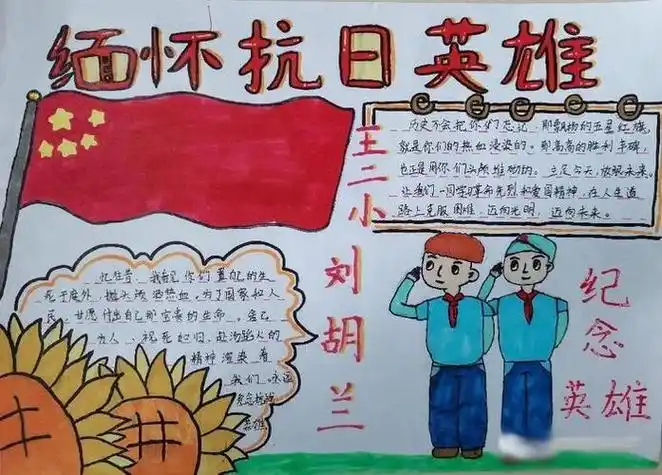 缅怀抗日英雄
历史不会把你们忘记，那飘扬的五星红旗，
就是你们的热血浸染的。那高高的胜利丰碑，
也正是用你们头颅堆砌的。立足今天，放眼未来。
让我们一同学习革命先烈和爱国精神，在人生道
路上克服困难，迈向光明，迈向未来。
王二小
刘胡兰
忆往昔，我看见你们置自己的生
死于度外，抛头颅洒热血。为了国家和人
民，甘愿付出自己那宝贵的生命。舍己
为人、视死如归，赴汤蹈火的
精神渲染着
我们，永远
纪念
英雄